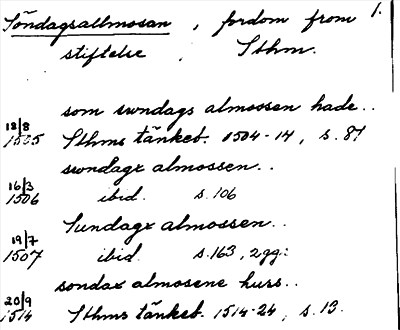 Söndagsallmosan, fordom from 1.
stiftelse Sthm.
som swndags almossen hade..
18/8 1505 Sthms tänkeb. 1504-14, s. 87
swndagx almossen..
16/3 1506 ibid. s. 106
Sundagx almossen..
19/7 1507 ibid. s. 163, 2gg:
sondax almosene huss..
20/9 1514 Sthms tänkeb. 1514-24, s. 13.